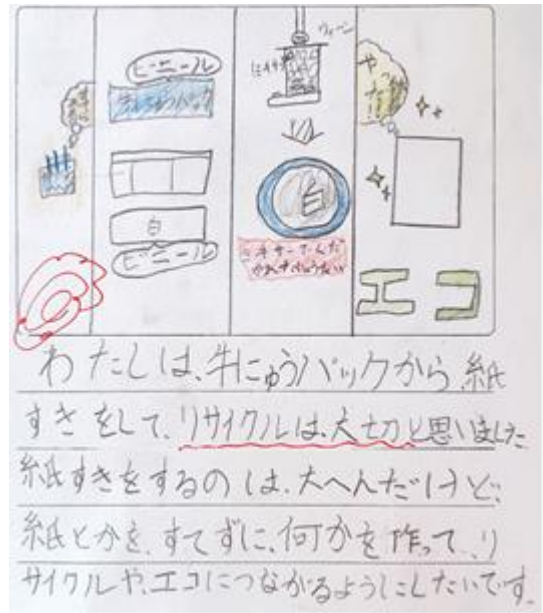 ビニール
牛にゅうパック
白
ビニール
ウィーン
ミキサー
白
やった!!
エコ
わたしは、牛にゅうパックから、紙
すきをして、リサイクルは、大切と思いました
紙すきをするのは、大へんだけど、
紙とかを、すてずに、何かを作って、リ
サイクルや、エコにつながるようにしたいです。